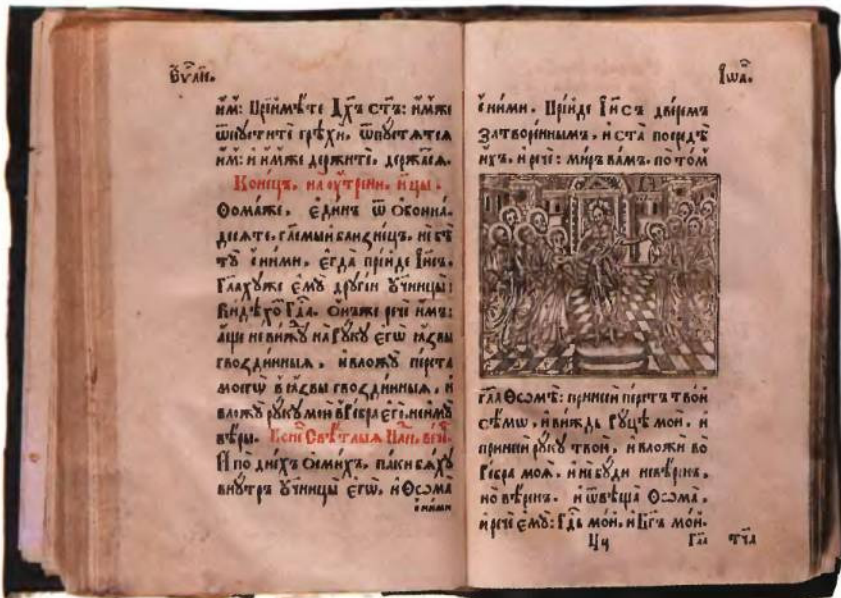 Єѵ҃лїе.
и҆́мъ: Прїими́те Дх҃ъ ст҃ъ: и҆́мже
ѿпустите грѣхѝ, ѿпу́стятся
и҆́мъ: и҆ и҆́мже держитѐ,
Коне́цъ.
Ѳома́же, є҆ди́нъ ѿ Обоюна́-
десяте, гл҃емый близне́цъ, не бѣ̀
тꙋ̀ с ни́ми, є҆гда̀ прїи́де І҆и҃съ.
Гл҃ахуже є҆мꙋ̀ дрꙋгі́и ᲂу҆ч҃ницы:
Ви́дѣхо Гд҃а. О҆́нъже речѐ и҆́мъ:
а҆́ще не ви́жꙋ на рꙋкꙋ̀ є҆гѡ̀ ꙗ҆́звы
гвозди́нныя, и҆ вложꙋ̀ пе́рста
моегѡ̀ в ꙗ҆́звы гвозди́нныя, и҆
вложꙋ̀ рꙋ́кꙋ мою̀ в ре́бра є҆гѡ̀, не и҆мꙋ̀
вѣ́ры.
И҆ по дне́хъ О҆сми́хъ, па́ки бя́хꙋ
внꙋ́трь ᲂу҆ч҃ницы̀ є҆гѡ̀, и҆ Ѳома̀
с ни́ми
І҆ѡа҃.
с ни́ми. Прїи́де І҆и҃съ две́ремъ
Затворе́ннымъ, и҆ ста̀ посредѣ̀
и҆́хъ, и҆ речѐ: ми́ръ ва́мъ. пото́м
гл҃а Ѳѡмѣ̀: принесѝ пе́рстъ тво́й
сѣ́мѡ, и҆ ви́ждь рꙋ́цѣ моѝ, и҆
принесѝ рꙋ́кꙋ твою̀, и҆ вложѝ во
ре́бра моя̀, и҆ не бꙋ́ди невѣ́ренъ,
но вѣ́ренъ. и҆ ѿвѣща̀ Ѳѡма̀,
и҆ речѐ є҆мꙋ̀: Гд҃ь мо́й, и҆ Бг҃ъ мо́й.
Цч Гл҃а